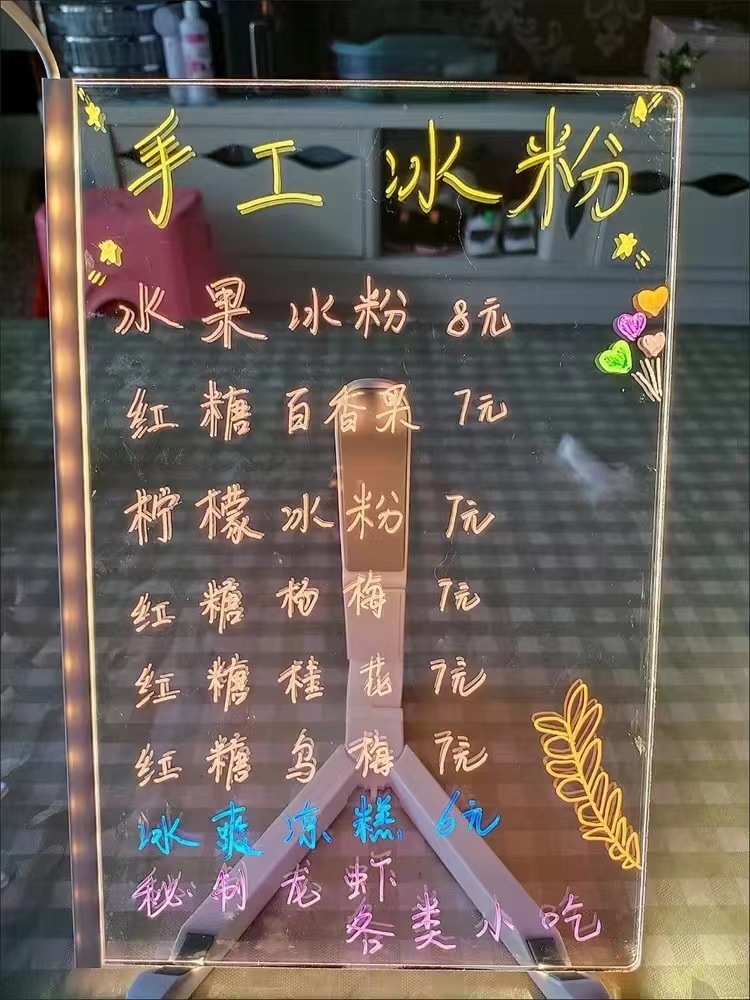 手工冰粉
水果冰粉 8元
红糖百香果 7元
柠檬冰粉 7元
红糖杨梅 7元
红糖桂花 7元
红糖乌梅 7元
冰爽凉糕 6元
秘制龙虾
各类小吃